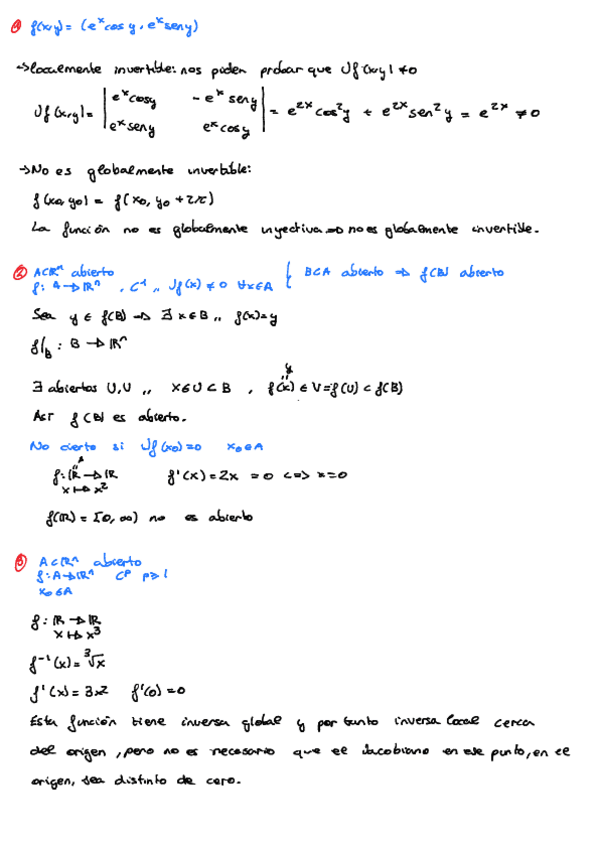 ① f(x,y) = (e^x cos y, e^x sen y)
→ Localmente invertible: nos piden probar que Jf(x,y) ≠ 0
Jf(x,y) = | e^x cos y   - e^x sen y |
| e^x sen y   e^x cos y | = e^{2x} cos² y + e^{2x} sen² y = e^{2x} ≠ 0
→ No es globalmente invertible:
f(x₀,y₀) = f(x₀, y₀ + 2π)
La función no es globalmente inyectiva ⇒ no es globalmente invertible.
② A⊂ℝⁿ abierto
f: A → ℝⁿ, C¹ ,, Jf(x) ≠ 0 ∀x∈A { B⊂A abierto ⇒ f(B) abierto
Sea y ∈ f(B) ⇒ ∃ x∈B ,, f(x)=y
f|_B : B → ℝⁿ
y
"
∃ abiertos U,V ,, x∈U⊂B , f(x) ∈ V=f(U) ⊂ f(B)
Así f(B) es abierto.
No cierto si Jf(x₀)=0 x₀∈A
A
"
f: ℝ → ℝ   f'(x) = 2x = 0 <=> x=0
x ↦ x²
f(ℝ) = [0,∞) no es abierto
③ A⊂ℝⁿ abierto
f: A→ℝⁿ C^p p≥1
x₀∈A
f: ℝ → ℝ
x ↦ x³
f⁻¹(x) = ³√x
f'(x) = 3x²   f'(0) = 0
Esta función tiene inversa global y por tanto inversa local cerca
del origen, pero no es necesario que el Jacobiano en ese punto, en el
origen, sea distinto de cero.